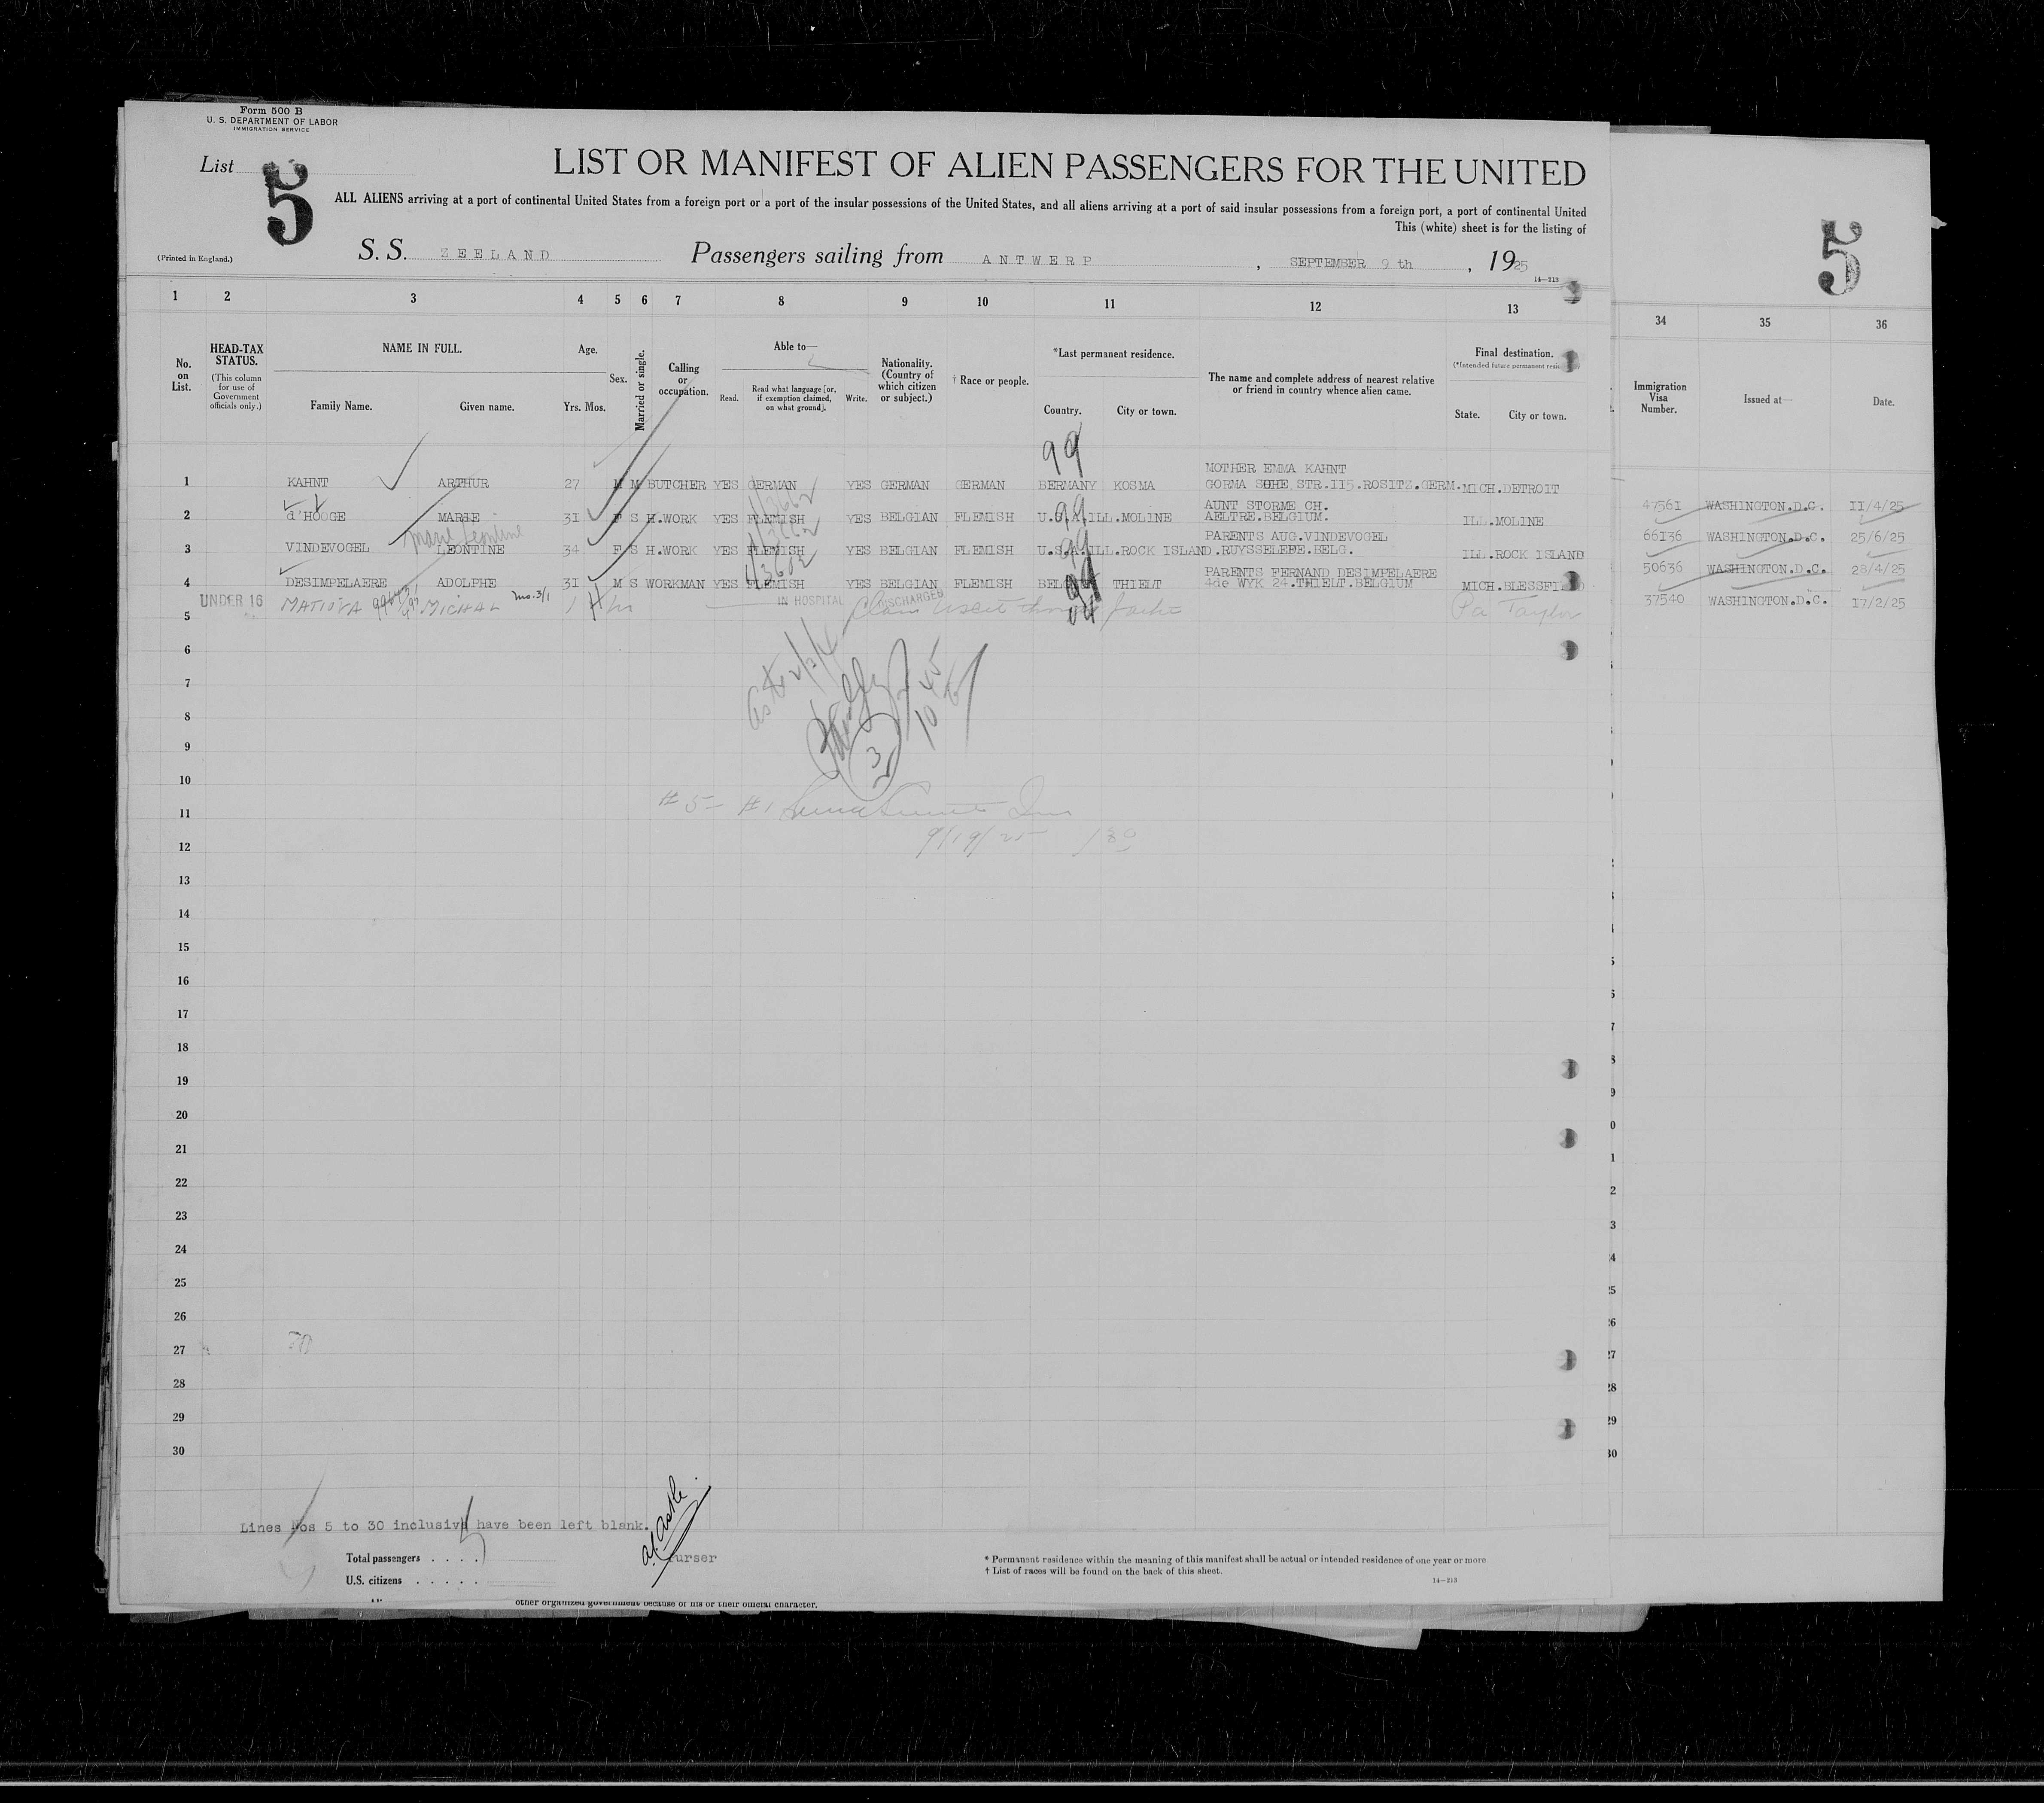 Form 500 B
U. S. DEPARTMENT OF LABOR
IMMIGRATION SERVICE
List 5
LIST OR MANIFEST OF ALIEN PASSENGERS FOR THE UNITED
ALL ALIENS arriving at a port of continental United States from a foreign port or a port of the insular possessions of the United States, and all aliens arriving at a port of said insular possessions from a foreign port, a port of continental United
This (white) sheet is for the listing of
5
(Printed in England.)
S. S. ZEELAND Passengers sailing from ANTWERP, SEPTEMBER 9 th, 1925
14—213
1 2 3 4 5 6 7 8 9 10 11 12 13 34 35 36
No. on List.
HEAD-TAX STATUS.
(This column for use of Government officials only.)
NAME IN FULL.
Family Name. Given name.
Age.
Yrs. Mos.
Sex.
Married or single.
Calling or occupation.
Able to—
Read. Read what language [or, if exemption claimed, on what ground]. Write.
Nationality. (Country of which citizen or subject.)
† Race or people.
*Last permanent residence.
Country. City or town.
The name and complete address of nearest relative or friend in country whence alien came.
Final destination.
(*Intended future permanent
State. City or town.
Immigration Visa Number.
Issued at—
Date.
99
MOTHER EMMA KAHNT
1 KAHNT ARTHUR 27 M M BUTCHER YES GERMAN YES GERMAN GERMAN BERMANY KOSMA GORMA SUHE STR.II5.ROSITZ.GERM. MICH.DETROIT
47561 WASHINGTON.D.C. II/4/25
AUNT STORME CH.
2 d'HOOGE MARIE 3I F S H.WORK YES FLEMISH YES BELGIAN FLEMISH U.S.A. ILL.MOLINE AELTRE.BELGIUM. ILL.MOLINE
66136 WASHINGTON.D.C. 25/6/25
Marie Leontine
PARENTS AUG.VINDEVOGEL
3 VINDEVOGEL LEONTINE 34 F S H.WORK YES FLEMISH YES BELGIAN FLEMISH U.S.A. ILL.ROCK ISLAND.RUYSSELEFE.BELG. ILL.ROCK ISLAND
50636 WASHINGTON.D.C. 28/4/25
PARENTS FERNAND DESIMPELAERE
4 DESIMPELAERE ADOLPHE 3I M S WORKMAN YES FLEMISH YES BELGIAN FLEMISH THIELT 4de WYK 24.THIELT.BELGIUM MICH.BLESSFI
37540 WASHINGTON.D.C. I7/2/25
UNDER 16 MICHAL IN HOSPITAL DISCHARGED Pa Taylor
5
6
7
8
9
10
11
# 5 - # 1
9/19/25
12
13
14
15
16
17
18
19
20
21
22
23
24
25
26
27
28
29
30
Lines Nos 5 to 30 inclusive have been left blank.
5
Purser
Total passengers . . . .
U.S. citizens . . . . .
* Permanent residence within the meaning of this manifest shall be actual or intended residence of one year or more
† List of races will be found on the back of this sheet.
14—213
other organized government because of his or their official character.